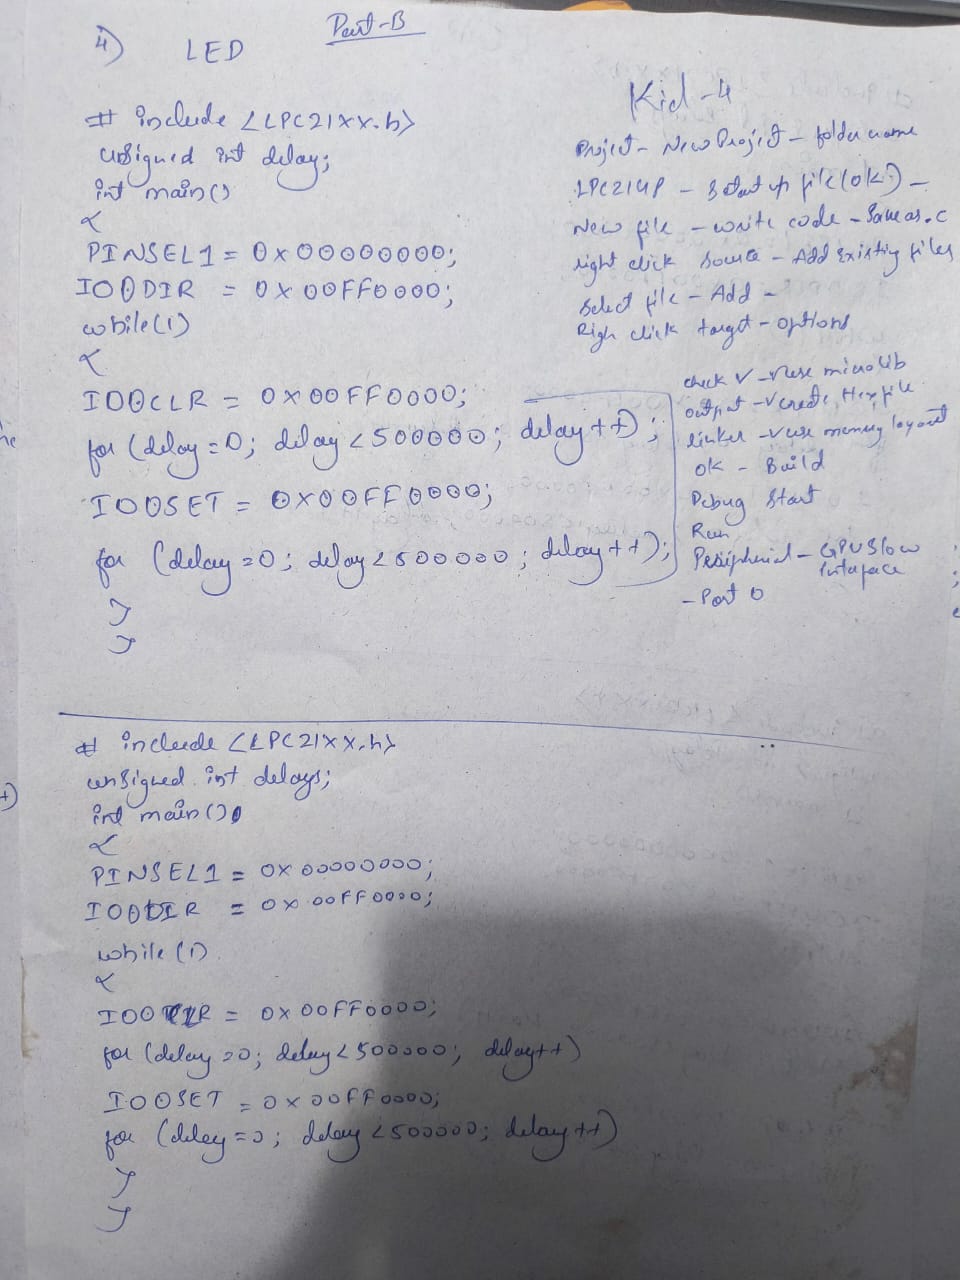 Part-B
4) LED
# include <LPC21xx.h>
unsigned int delay;
int main()
{
PINSEL1 = 0x00000000;
IO0DIR = 0x00FF0000;
while(1)
{
IO0CLR = 0x00FF0000;
for (delay=0; delay<500000; delay++);
IO0SET = 0x00FF0000;
for (delay=0; delay<500000; delay++);
}
}
Kiel-4
Project - New Project - folder name
LPC2148 - Start up file (ok) -
New file - write code - Save as .c
right click source - Add Existing files
Select file - Add -
Righ click target - options
check ✓ - use microlib
output - ✓ create Hex file
linker - ✓ use memory layout
OK - Build
Debug Start
Run
Peripherial - Slow
Interface
- Port 0
# include <LPC21xx.h>
unsigned int delays;
int main()
{
PINSEL1 = 0x00000000;
IO0DIR = 0x00FF0000;
while(1)
{
IO0CLR = 0x00FF0000;
for (delay=0; delay<500000; delay++)
IO0SET = 0x00FF0000;
for (delay=0; delay<500000; delay++)
}
}